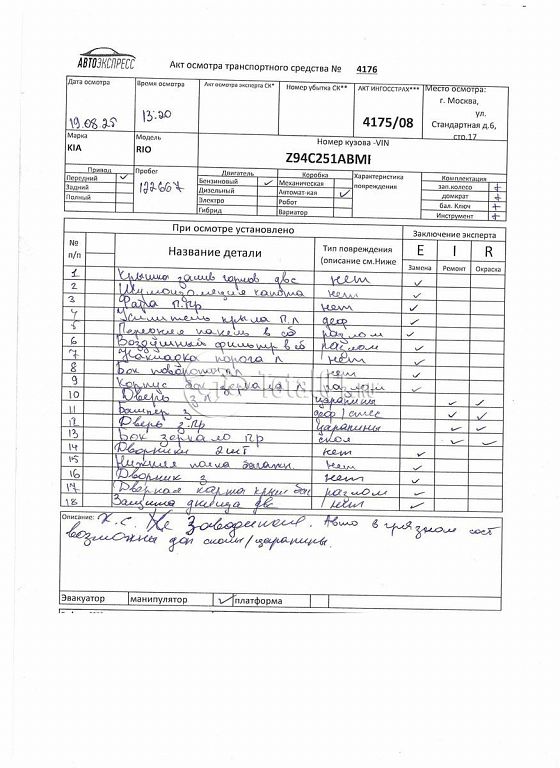 АВТОЭКСПРЕСС
Акт осмотра транспортного средства № 4176
Дата осмотра
Время осмотра
Акт осмотра эксперта СК*
Номер убытка СК**
АКТ ИНГОССТРАХ***
Место осмотра:
г. Москва,
ул.
Стандартная д.6,
стр.17
19.08.25
13:20
4175/08
Марка
Модель
Номер кузова -VIN
KIA
RIO
Z94C251ABMI
Привод
Пробег
Двигатель
Коробка
Характеристика
повреждения
Комплектация
Передний ✓
Бензиновый ✓
Механическая
зап.колесо +
Задний
122667
Дизельный
Автомат-кая ✓
домкрат +
Полный
Электро
Робот
бал. Ключ +
Гибрид
Вариатор
Инструмент +
При осмотре установлено
Заключение эксперта
№
п/п
Название детали
Тип повреждения
(описание см.Ниже
E I R
Замена Ремонт Окраска
1 Крышка залив горлов двс нет ✓
2 Шумоизоляция капота нет ✓
3 Фара п.пр нет ✓
4 Усилитель крыла П.л деф ✓
5 Передняя панель в сб разлом ✓
6 Воздушный фильтр в сб разлом ✓
7 Накладка порога л нет ✓
8 Бок нет ✓
9 Корпус бок зеркала л разлом ✓
10 Дверь з л царапины ✓ ✓
11 Бампер з деф/ ✓ ✓
12 Дверь з.пр царапины ✓ ✓
13 Бок зеркало пр скол ✓ ✓
14 Дворники 2 шт нет ✓
15 Нижняя полка нет ✓
16 Дворник з нет ✓
17 Дверная карта разлом ✓
18 Защита днища двс нет ✓
Описание: Х.С. Не Заводится. Авто в грязном сост
возможны доп сколы/царапины.
Эвакуатор
манипулятор
✓ платформа